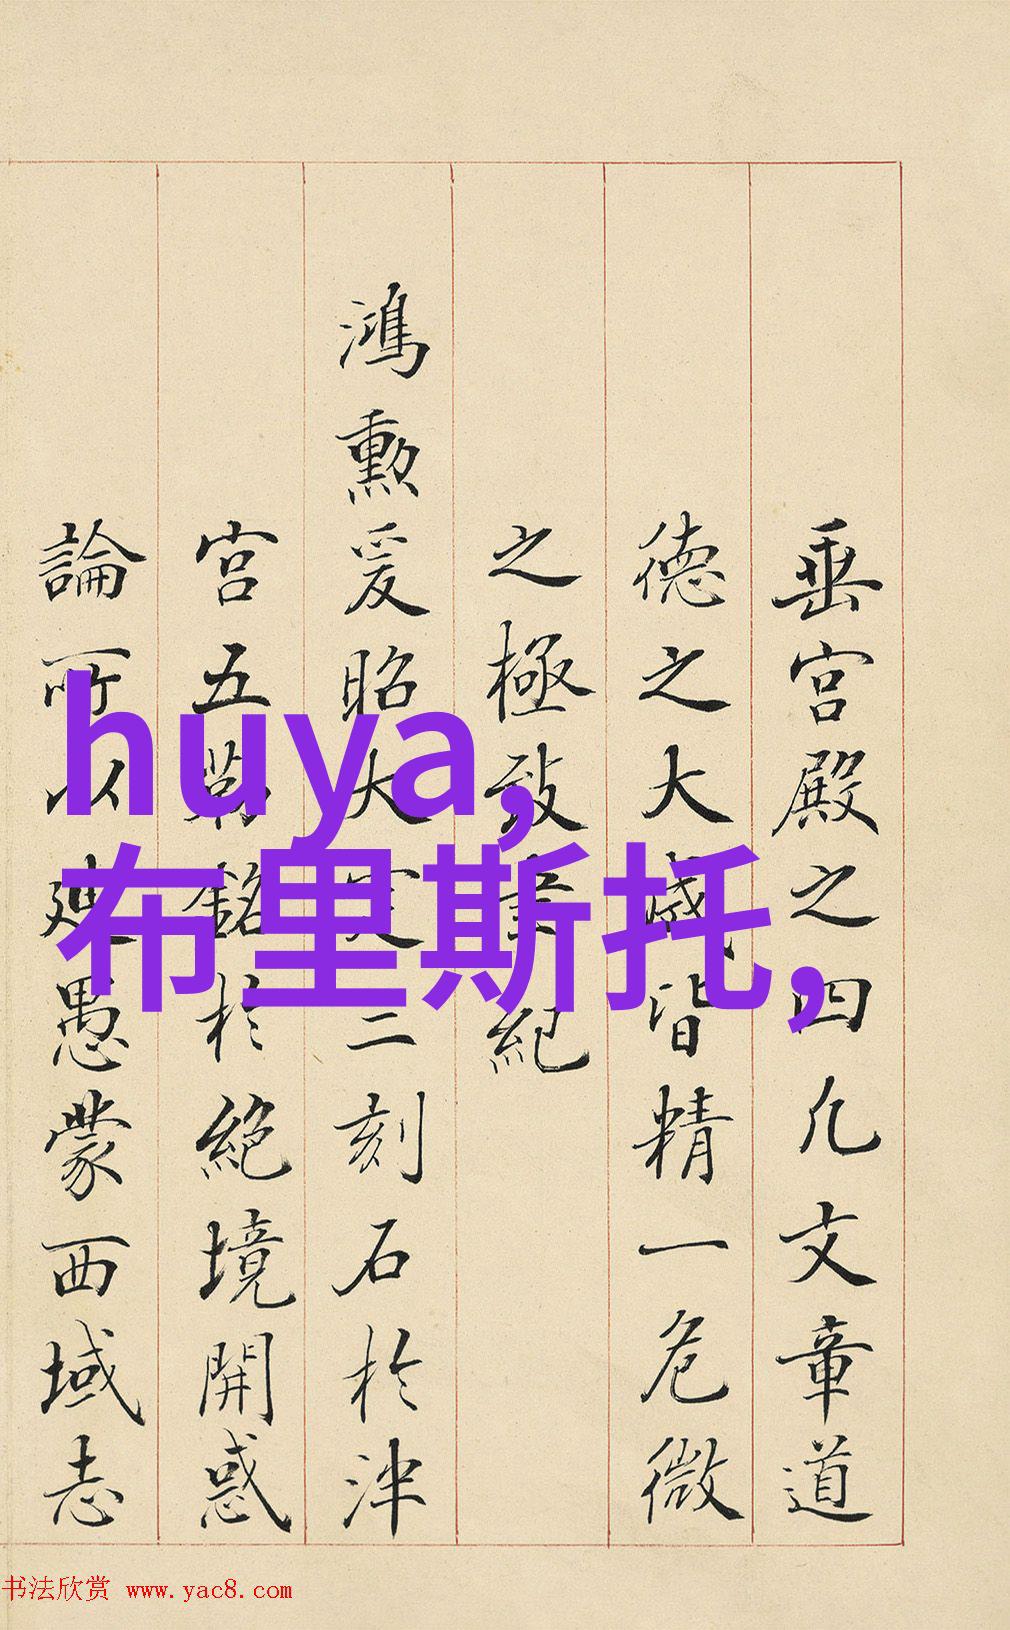 垂宫殿之四凡文章道
德之大咸皆精一危微
之極致業紀
鴻勲爰昭大定三刻石於津
宫五第銘於絶境開惑
論所以連愚蒙西域志
huya,
布里斯托,
书法欣赏 www.yac8.com